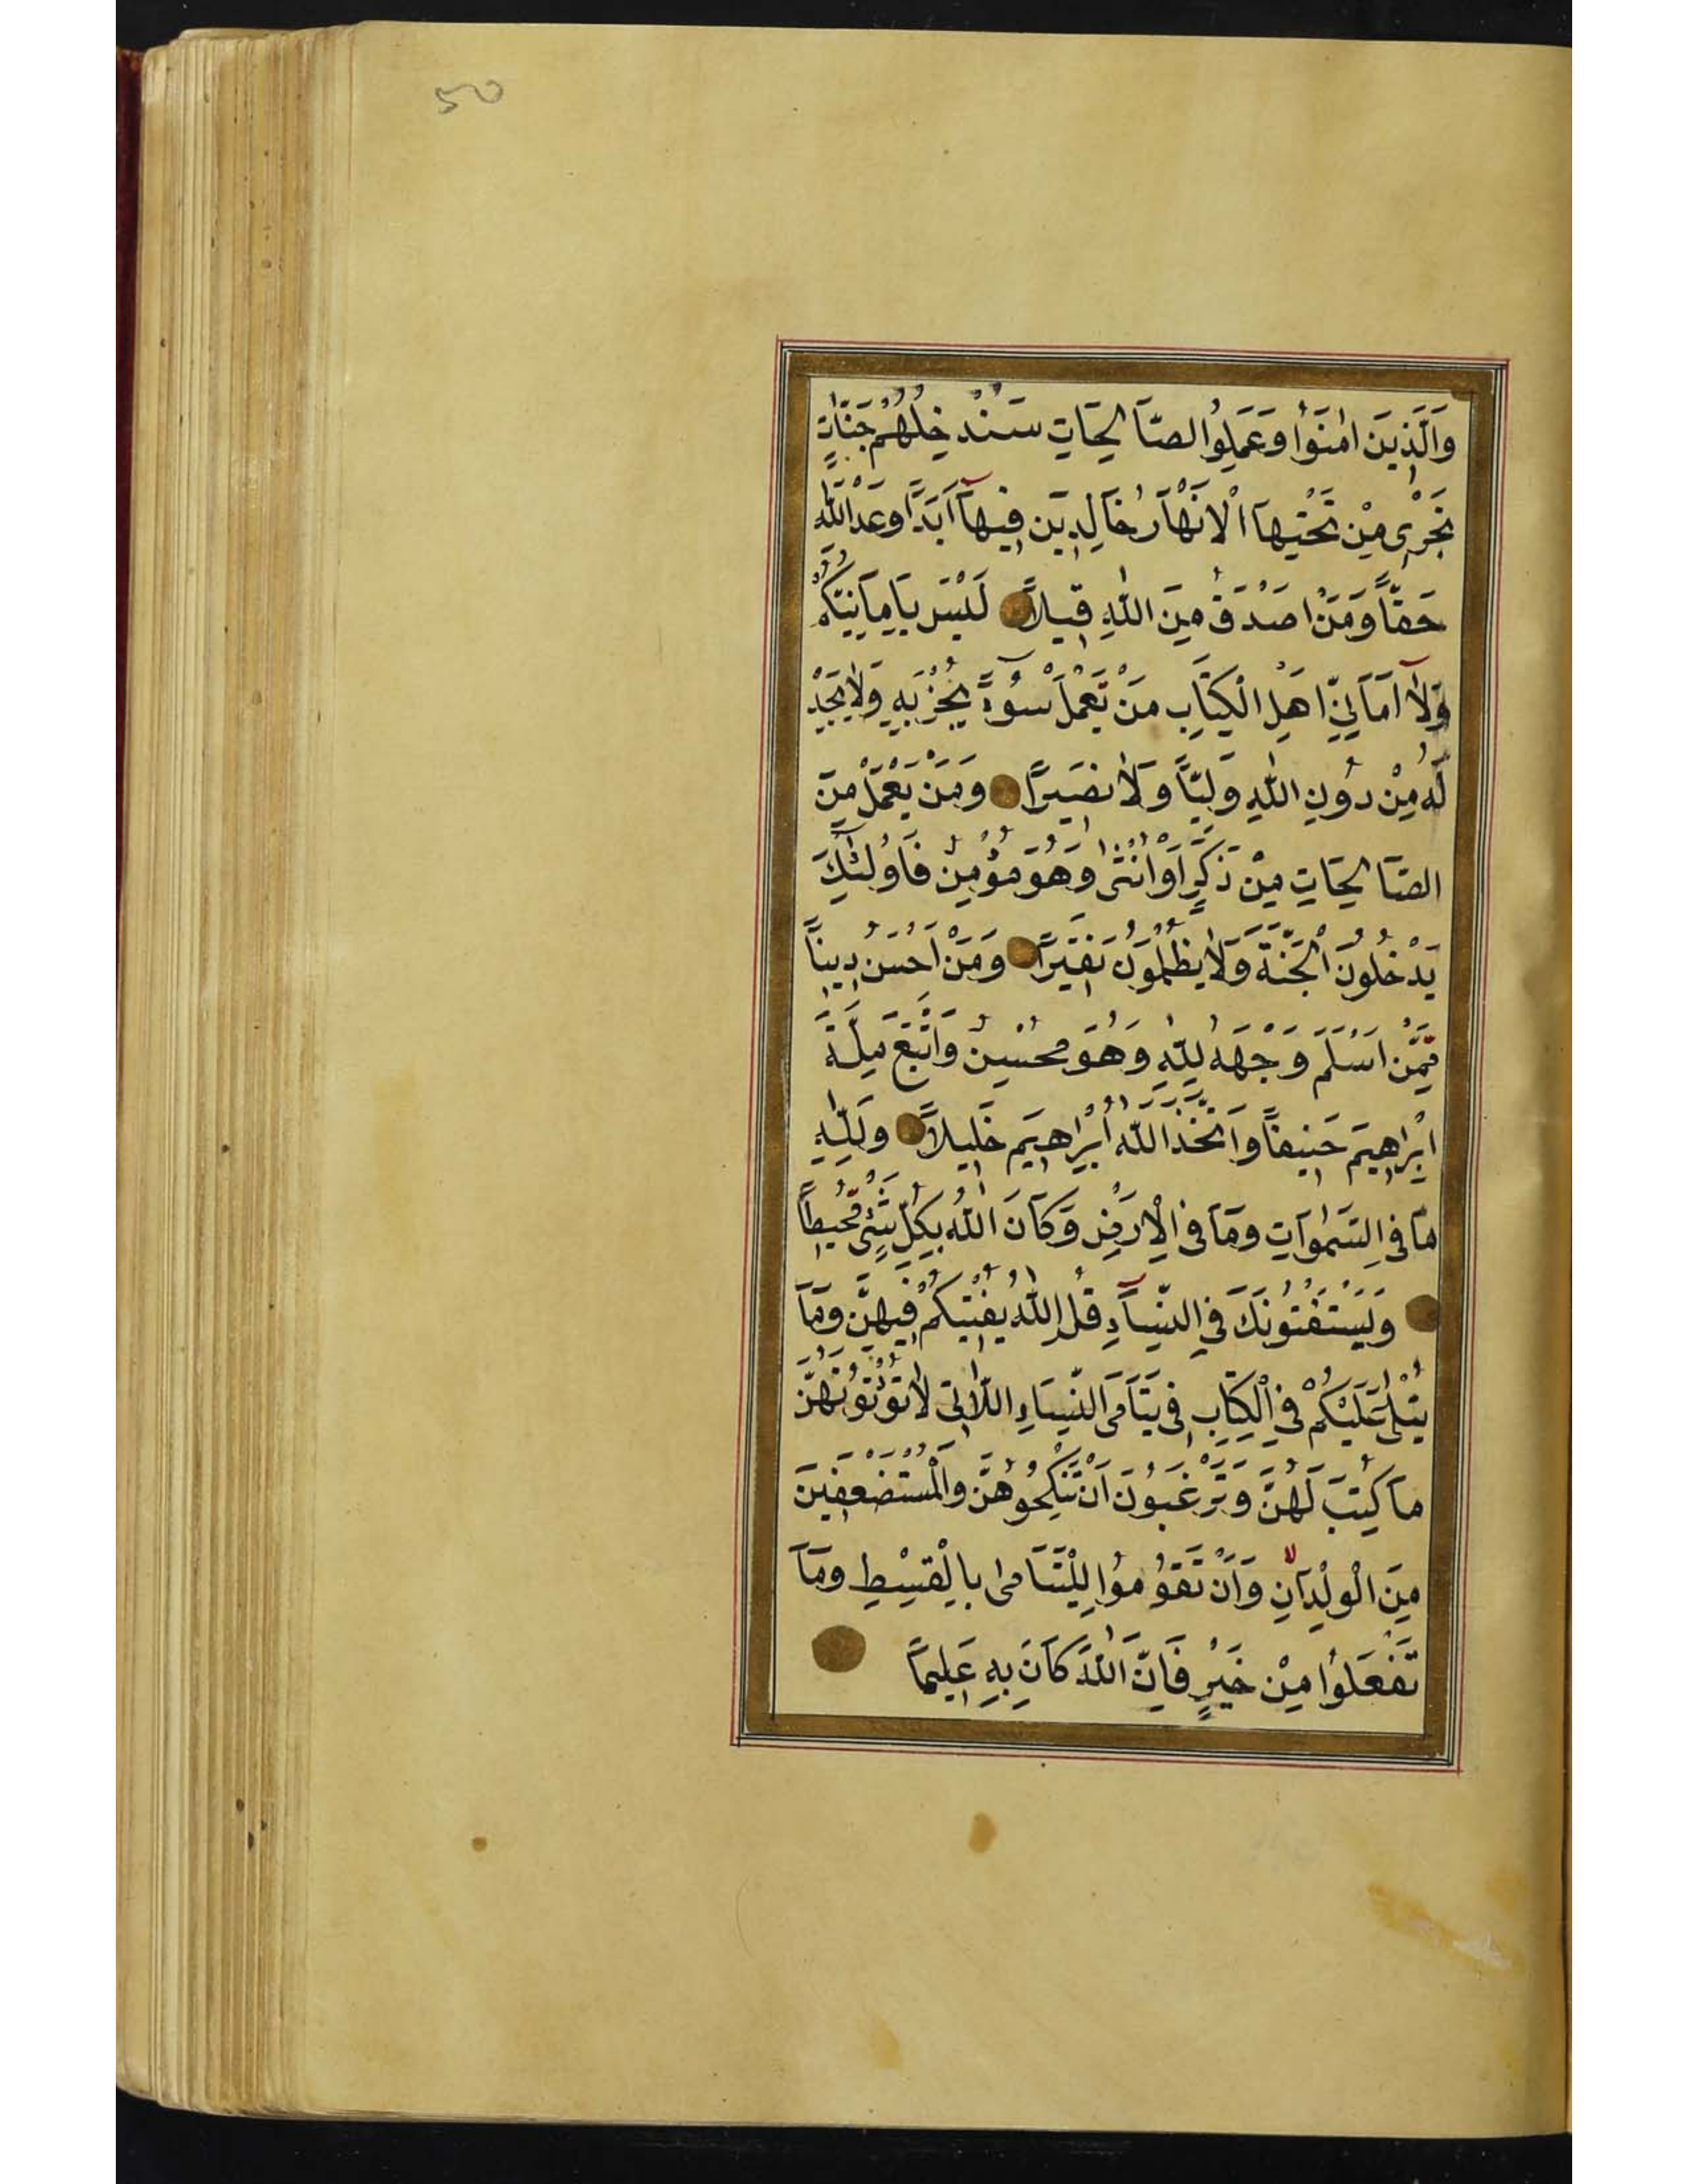 50
وَالَّذِينَ اٰمَنُوا وَعَمِلُوا الصَّالِحَاتِ سَنُدْخِلُهُمْ جَنَّاتٍ
تَجْرِي مِنْ تَحْتِهَا الْاَنْهَارُ خَالِدِينَ فِيهَآ اَبَدًا وَعْدَ اللّٰهِ
حَقًّا وَمَنْ اَصْدَقُ مِنَ اللّٰهِ قِيلًا لَيْسَ بِاَمَانِيِّكُمْ
وَلَآ اَمَانِيِّ اَهْلِ الْكِتَابِ مَنْ يَعْمَلْ سُوٓءًا يُجْزَ بِهِ وَلَا يَجِدْ
لَهُ مِنْ دُونِ اللّٰهِ وَلِيًّا وَلَا نَصِيرًا وَمَنْ يَعْمَلْ مِنَ
الصَّالِحَاتِ مِنْ ذَكَرٍ اَوْ اُنْثٰى وَهُوَ مُؤْمِنٌ فَاُولٰٓئِكَ
يَدْخُلُونَ الْجَنَّةَ وَلَا يُظْلَمُونَ نَقِيرًا وَمَنْ اَحْسَنُ دِينًا
مِمَّنْ اَسْلَمَ وَجْهَهُ لِلّٰهِ وَهُوَ مُحْسِنٌ وَاتَّبَعَ مِلَّةَ
اِبْرٰاهِيمَ حَنِيفًا وَاتَّخَذَ اللّٰهُ اِبْرٰاهِيمَ خَلِيلًا وَلِلّٰهِ
مَا فِي السَّمٰوَاتِ وَمَا فِي الْاَرْضِ وَكَانَ اللّٰهُ بِكُلِّ شَيْءٍ مُحِيطًا
وَيَسْتَفْتُونَكَ فِي النِّسَآءِ قُلِ اللّٰهُ يُفْتِيكُمْ فِيهِنَّ وَمَا
يُتْلٰى عَلَيْكُمْ فِي الْكِتَابِ فِي يَتَامَى النِّسَاءِ اللَّاتِي لَا تُؤْتُونَهُنَّ
مَا كُتِبَ لَهُنَّ وَتَرْغَبُونَ اَنْ تَنْكِحُوهُنَّ وَالْمُسْتَضْعَفِينَ
مِنَ الْوِلْدَانِ وَاَنْ تَقُومُوا لِلْيَتَامٰى بِالْقِسْطِ وَمَا
تَفْعَلُوا مِنْ خَيْرٍ فَاِنَّ اللّٰهَ كَانَ بِهِ عَلِيمًا